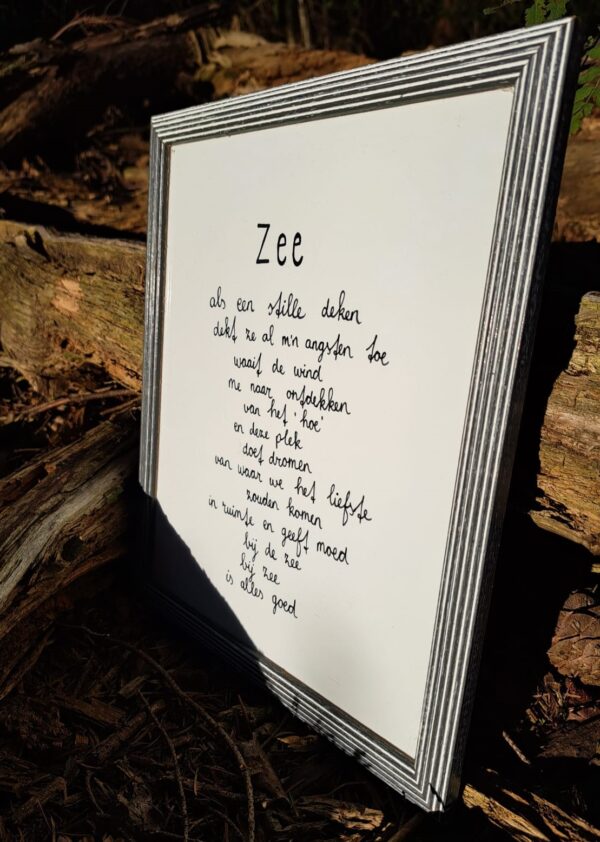 Zee
als een stille deken
dekt ze al m'n angsten toe
waait de wind
me naar ontdekken
van het 'hoe'
en deze plek
doet dromen
van waar we het liefste
zouden komen
in ruimte en geeft moed
bij de zee
bij zee
is alles goed